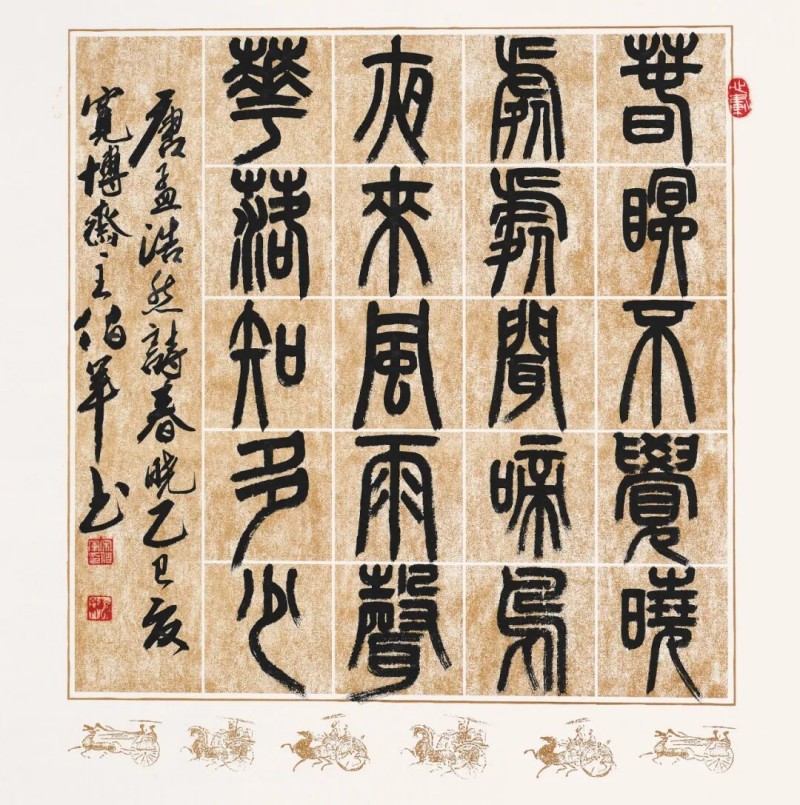 春瞑不覺曉
處處聞啼鳥
夜來風雨聲
華落知多少
唐孟浩然詩春晓乙巳夏
寬博齋主伯軍书